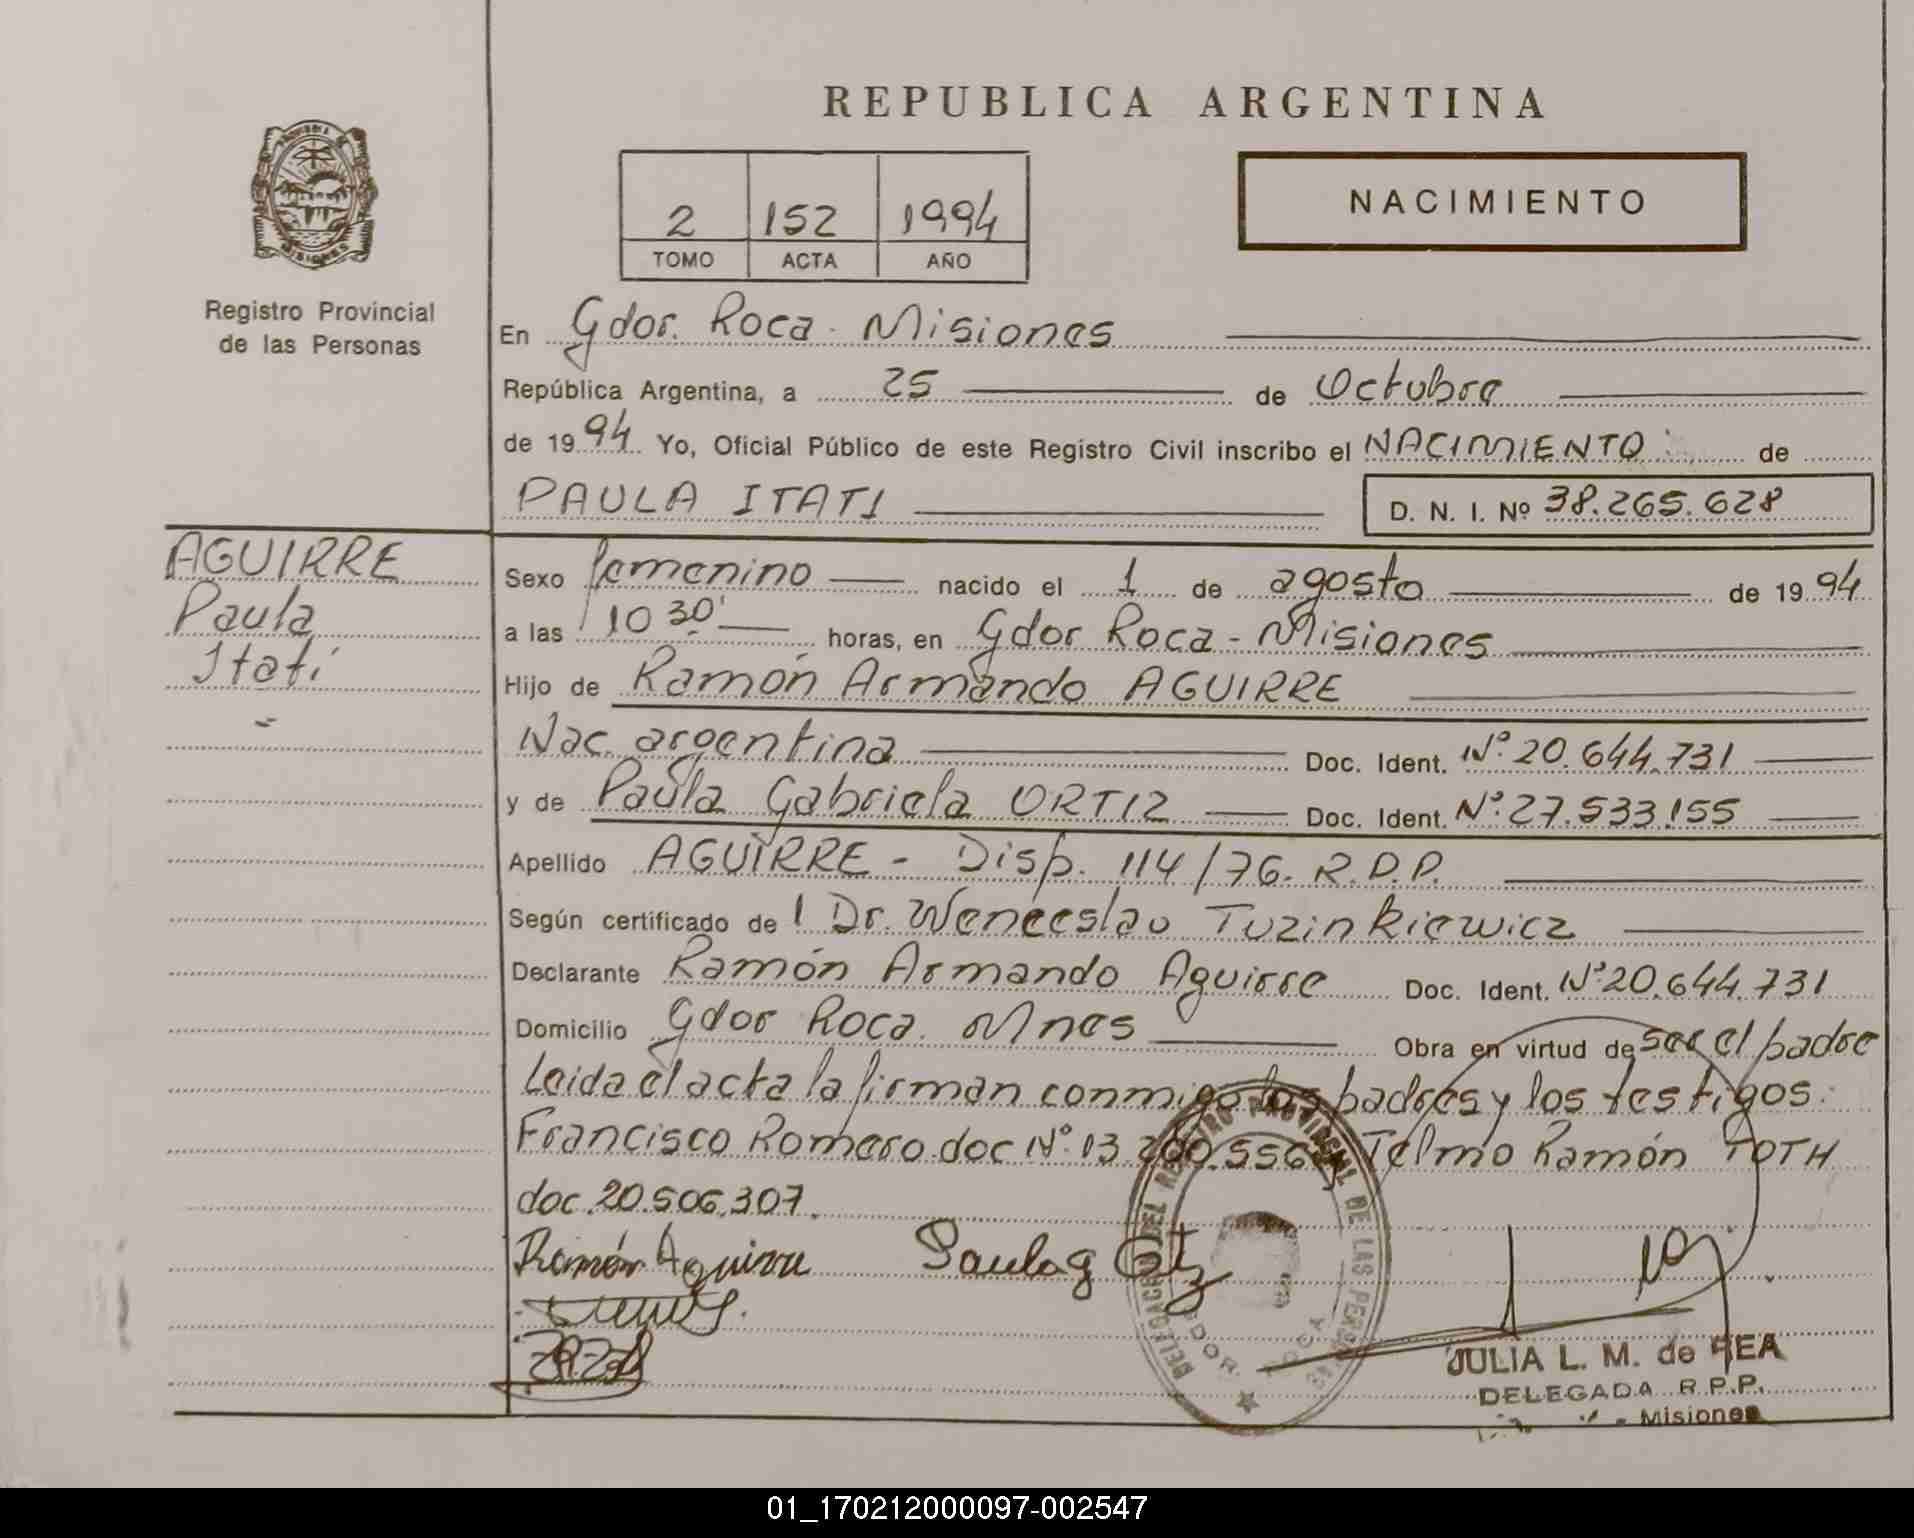 REPUBLICA ARGENTINA
NACIMIENTO
2 152 1994
TOMO ACTA AÑO
Registro Provincial
de las Personas
En Gdor. Roca - Misiones
República Argentina, a 25 de Octubre
de 1994 Yo, Oficial Público de este Registro Civil inscribo el NACIMIENTO de
PAULA ITATI D. N. I. Nº 38.265.628
AGUIRRE
Paula
Itatí
Sexo femenino nacido el 1 de agosto de 1994
a las 10 30' horas, en Gdor Roca - Misiones
Hijo de Ramón Armando AGUIRRE
Nac. argentina Doc. Ident. Nº 20.644.731
y de Paula Gabriela ORTIZ Doc. Ident. Nº 27.533.155
Apellido AGUIRRE - Disp. 114/76. R.D.P.
Según certificado de 1 Dr. Wenceslao Tuzinkiewicz
Declarante Ramón Armando Aguirre Doc. Ident. Nº 20.644.731
Domicilio Gdor Roca. Mnes Obra en virtud de ser el padre
Leida el acta la firman conmigo los padres y los testigos:
Francisco Romero doc Nº 13.200.556 y Telmo Ramón TOTH
doc. 20.506.307.
Ramón Aguirre Paula G Ortiz
DELEGACION DEL REGISTRO PROVINCIAL DE LAS PERSONAS
GDOR. ROCA
JULIA L. M. de REA
DELEGADA R.P.P.
Misiones
MISIONES
01_170212000097-002547